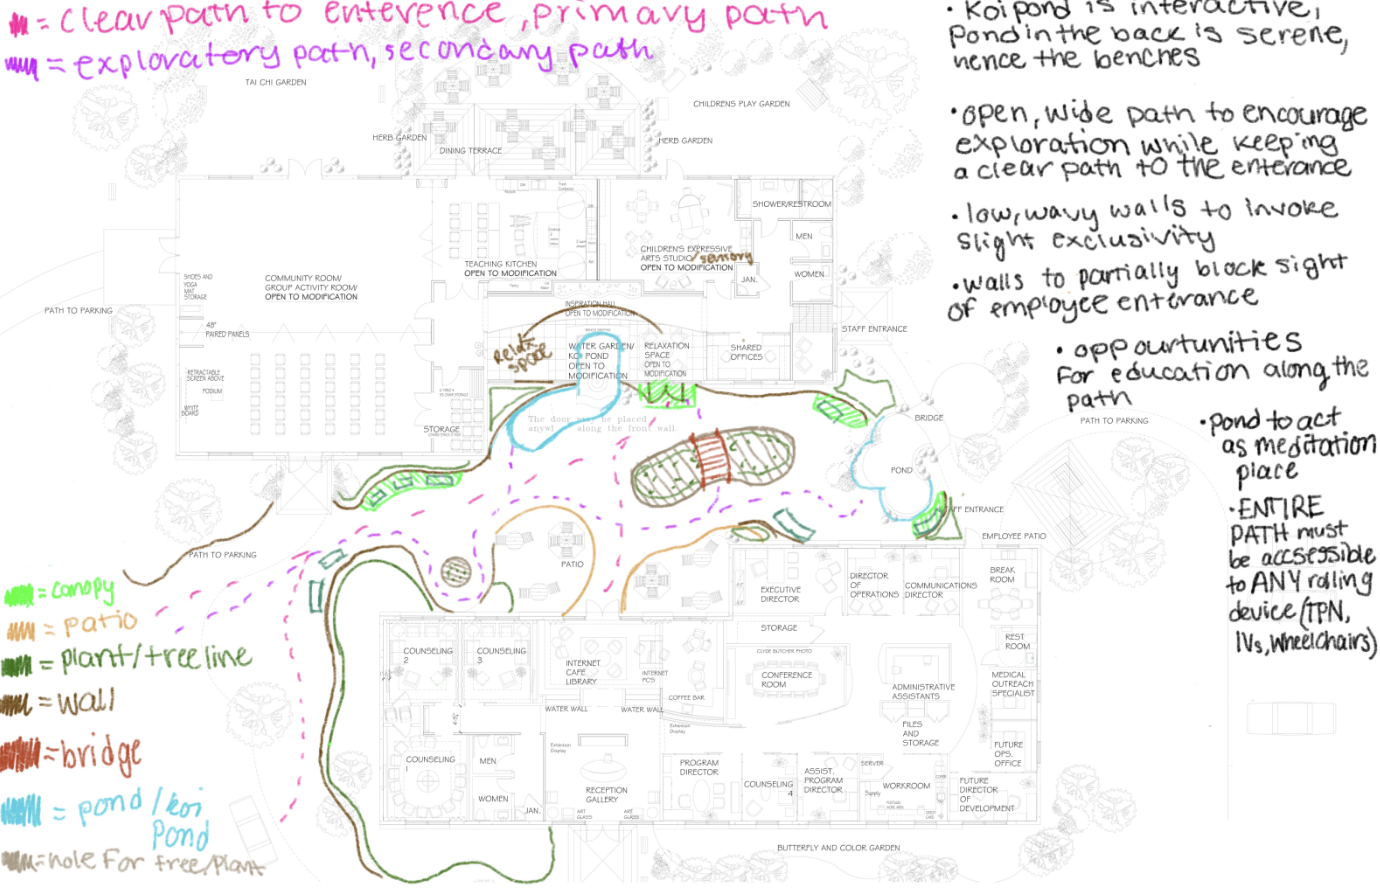 = clear path to enterence, primary path
= exploratory path, secondary path
• Koi pond is interactive,
Pond in the back is serene,
hence the benches
•open, wide path to encourage
exploration while keeping
a clear path to the enterance
• low, wavy walls to invoke
slight exclusivity
•walls to partially block sight
of employee enterance
• oppourtunities
for education along the
path
•pond to act
as meditation
place
•ENTIRE
PATH must
be accsessible
to ANY rolling
device (TPN,
IVs, wheelchairs)
TAI CHI GARDEN
CHILDRENS PLAY GARDEN
HERB GARDEN
DINING TERRACE
HERB GARDEN
SHOWER/RESTROOM
MEN
WOMEN
JAN.
CHILDREN'S EXPRESSIVE
ARTS STUDIO/sensory
OPEN TO MODIFICATION
TEACHING KITCHEN
OPEN TO MODIFICATION
SHOES AND
YOGA
MAT
STORAGE
COMMUNITY ROOM/
GROUP ACTIVITY ROOM/
OPEN TO MODIFICATION
INSPIRATION HALL
OPEN TO MODIFICATION
PATH TO PARKING
48"
PAIRED PANELS
STAFF ENTRANCE
Relax
space
WATER GARDEN/
KOI POND
OPEN TO
MODIFICATION
RELAXATION
SPACE
OPEN TO
MODIFICATION
SHARED
OFFICES
RETRACTABLE
SCREEN ABOVE
PODIUM
WHITE
BOARD
STORAGE
The door may be placed
anywhere along the front wall.
BRIDGE
PATH TO PARKING
POND
STAFF ENTRANCE
EMPLOYEE PATIO
PATH TO PARKING
PATIO
EXECUTIVE
DIRECTOR
DIRECTOR
OF
OPERATIONS
COMMUNICATIONS
DIRECTOR
BREAK
ROOM
= canopy
= patio
= plant/tree line
= wall
= bridge
= pond/koi
Pond
= hole For tree/plant
STORAGE
REST
ROOM
COUNSELING
2
COUNSELING
3
INTERNET
CAFE
LIBRARY
INTERNET
PC'S
CLYDE BUTCHER PHOTO
CONFERENCE
ROOM
COFFEE BAR
ADMINISTRATIVE
ASSISTANTS
MEDICAL
OUTREACH
SPECIALIST
WATER WALL
WATER WALL
FILES
AND
STORAGE
Extension
Display
Extension
Display
FUTURE
OPS.
OFFICE
COUNSELING
1
MEN
WOMEN
JAN.
RECEPTION
GALLERY
ART
GLASS
ART
GLASS
PROGRAM
DIRECTOR
COUNSELING
4
ASSIST.
PROGRAM
DIRECTOR
SERVER
WORKROOM
Supply
FUTURE
DIRECTOR
OF
DEVELOPMENT
BUTTERFLY AND COLOR GARDEN